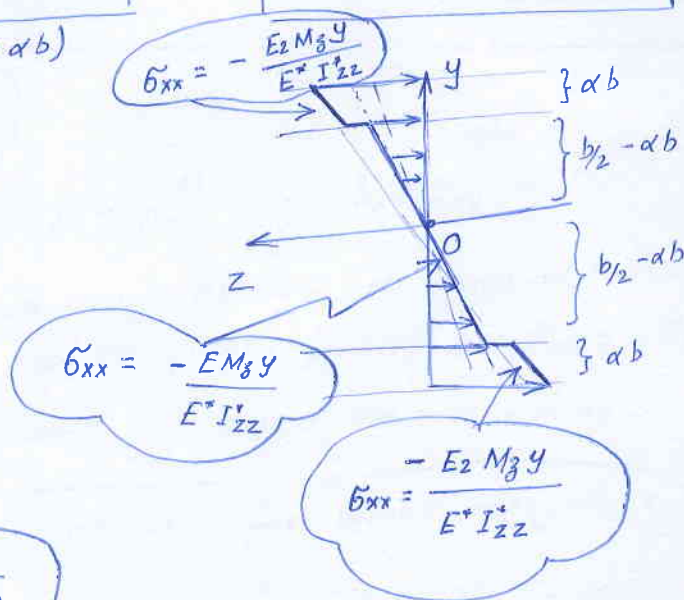 αb)
σxx = - E2 M3 y / E* I*zz
y
} αb
} b/2 - αb
O
Z
} b/2 - αb
} αb
σxx = - E M3 y / E* I*zz
σxx = - E2 M3 y / E* I*zz